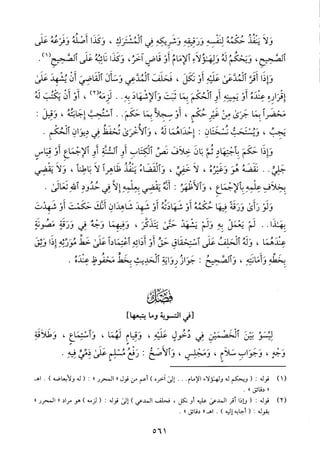 وَلَا يَنْفُذُ حُكْمُهُ لِنَفْسِهِ وَرَقِيقِهِ وَشَرِيكِهِ فِي الْمُشْتَرَكِ ، وَكَذَا أَصْلُهُ وَفَرْعُهُ عَلَى
الصَّحِيحِ ، وَيَحْكُمُ لَهُ وَلِهَؤُلَاءِ الْإِمَامُ أَوْ قَاضٍ آخَرُ ، وَكَذَا نَائِبُهُ عَلَى الصَّحِيحِ (١) .
وَإِذَا أَقَرَّ الْمُدَّعَىٰ عَلَيْهِ أَوْ نَكَلَ ، فَحَلَفَ الْمُدَّعِي وَسَأَلَ الْقَاضِيَ أَنْ يُشْهِدَ عَلَىٰ
إِقْرَارِهِ عِنْدَهُ أَوْ يَمِينِهِ أَوِ الْحُكْمِ بِمَا ثَبَتَ وَالْإِشْهَادِ بِهِ .. لَزِمَهُ (٢) ، أَوْ أَنْ يَكْتُبَ لَهُ
مَحْضَراً بِمَا جَرَىٰ مِنْ غَيْرِ حُكْمٍ ، أَوْ سِجِلّاً بِمَا حَكَمَ .. اسْتُحِبَّ إِجَابَتُهُ ، وَقِيلَ :
يَجِبُ ، وَيُسْتَحَبُّ نُسْخَتَانِ : إِحْدَاهُمَا لَهُ ، وَالْأُخْرَىٰ تُحْفَظُ فِي دِيوَانِ الْحُكْمِ .
وَإِذَا حَكَمَ بِاجْتِهَادٍ ثُمَّ بَانَ خِلَافَ نَصِّ الْكِتَابِ أَوِ السُّنَّةِ أَوِ الْإِجْمَاعِ أَوْ قِيَاسٍ
جَلِيٍّ .. نَقَضَهُ هُوَ وَغَيْرُهُ ، لَا خَفِيٍّ ، وَالْقَضَاءُ يَنْفُذُ ظَاهِراً لَا بَاطِناً ، وَلَا يَقْضِي
بِخِلَافِ عِلْمِهِ بِالْإِجْمَاعِ ، وَالْأَظْهَرُ : أَنَّهُ يَقْضِي بِعِلْمِهِ إِلَّا فِي حُدُودِ اللهِ تَعَالَىٰ .
وَلَوْ رَأَىٰ وَرَقَةً فِيهَا حُكْمُهُ أَوْ شَهَادَتُهُ أَوْ شَهِدَ شَاهِدَانِ أَنَّكَ حَكَمْتَ أَوْ شَهِدْتَ
بِهَذَا .. لَمْ يَعْمَلْ بِهِ وَلَمْ يَشْهَدْ حَتَّىٰ يَتَذَكَّرَ ، وَفِيهِمَا وَجْهٌ فِي وَرَقَةٍ مَصُونَةٍ
عِنْدَهُمَا ، وَلَهُ الْحَلِفُ عَلَى اسْتِحْقَاقِ حَقٍّ أَوْ أَدَائِهِ اعْتِمَاداً عَلَىٰ خَطِّ مُوَرِّثِهِ إِذَا وَثِقَ
بِخَطِّهِ وَأَمَانَتِهِ ، وَالصَّحِيحُ : جَوَازُ رِوَايَةِ الْحَدِيثِ بِخَطٍّ مَحْفُوظٍ عِنْدَهُ .
فَصْلٌ
[في التسوية وما يتبعها]
لِيُسَوِّ بَيْنَ الْخَصْمَيْنِ فِي دُخُولٍ عَلَيْهِ ، وَقِيَامٍ لَهُمَا ، وَاسْتِمَاعٍ ، وَطَلَاقَةِ
وَجْهٍ ، وَجَوَابِ سَلَامٍ ، وَمَجْلِسٍ ، وَالْأَصَحُّ : رَفْعُ مُسْلِمٍ عَلَىٰ ذِمِّيٍّ فِيهِ .
(١) قوله : ( ويحكم له ولهؤلاء الإمام ... إلى آخره ) أعم من قول « المحرر » : ( له ولأبعاضه ) . اهـ
« دقائق » .
(٢) قوله : ( وإذا أقر المدعىٰ عليه أو نكل ، فحلف المدعي ) إلىٰ قوله : ( لزمه ) هو مراد « المحرر »
بقوله : ( أجابه إليه ) . اهـ « دقائق » .
٥٦١